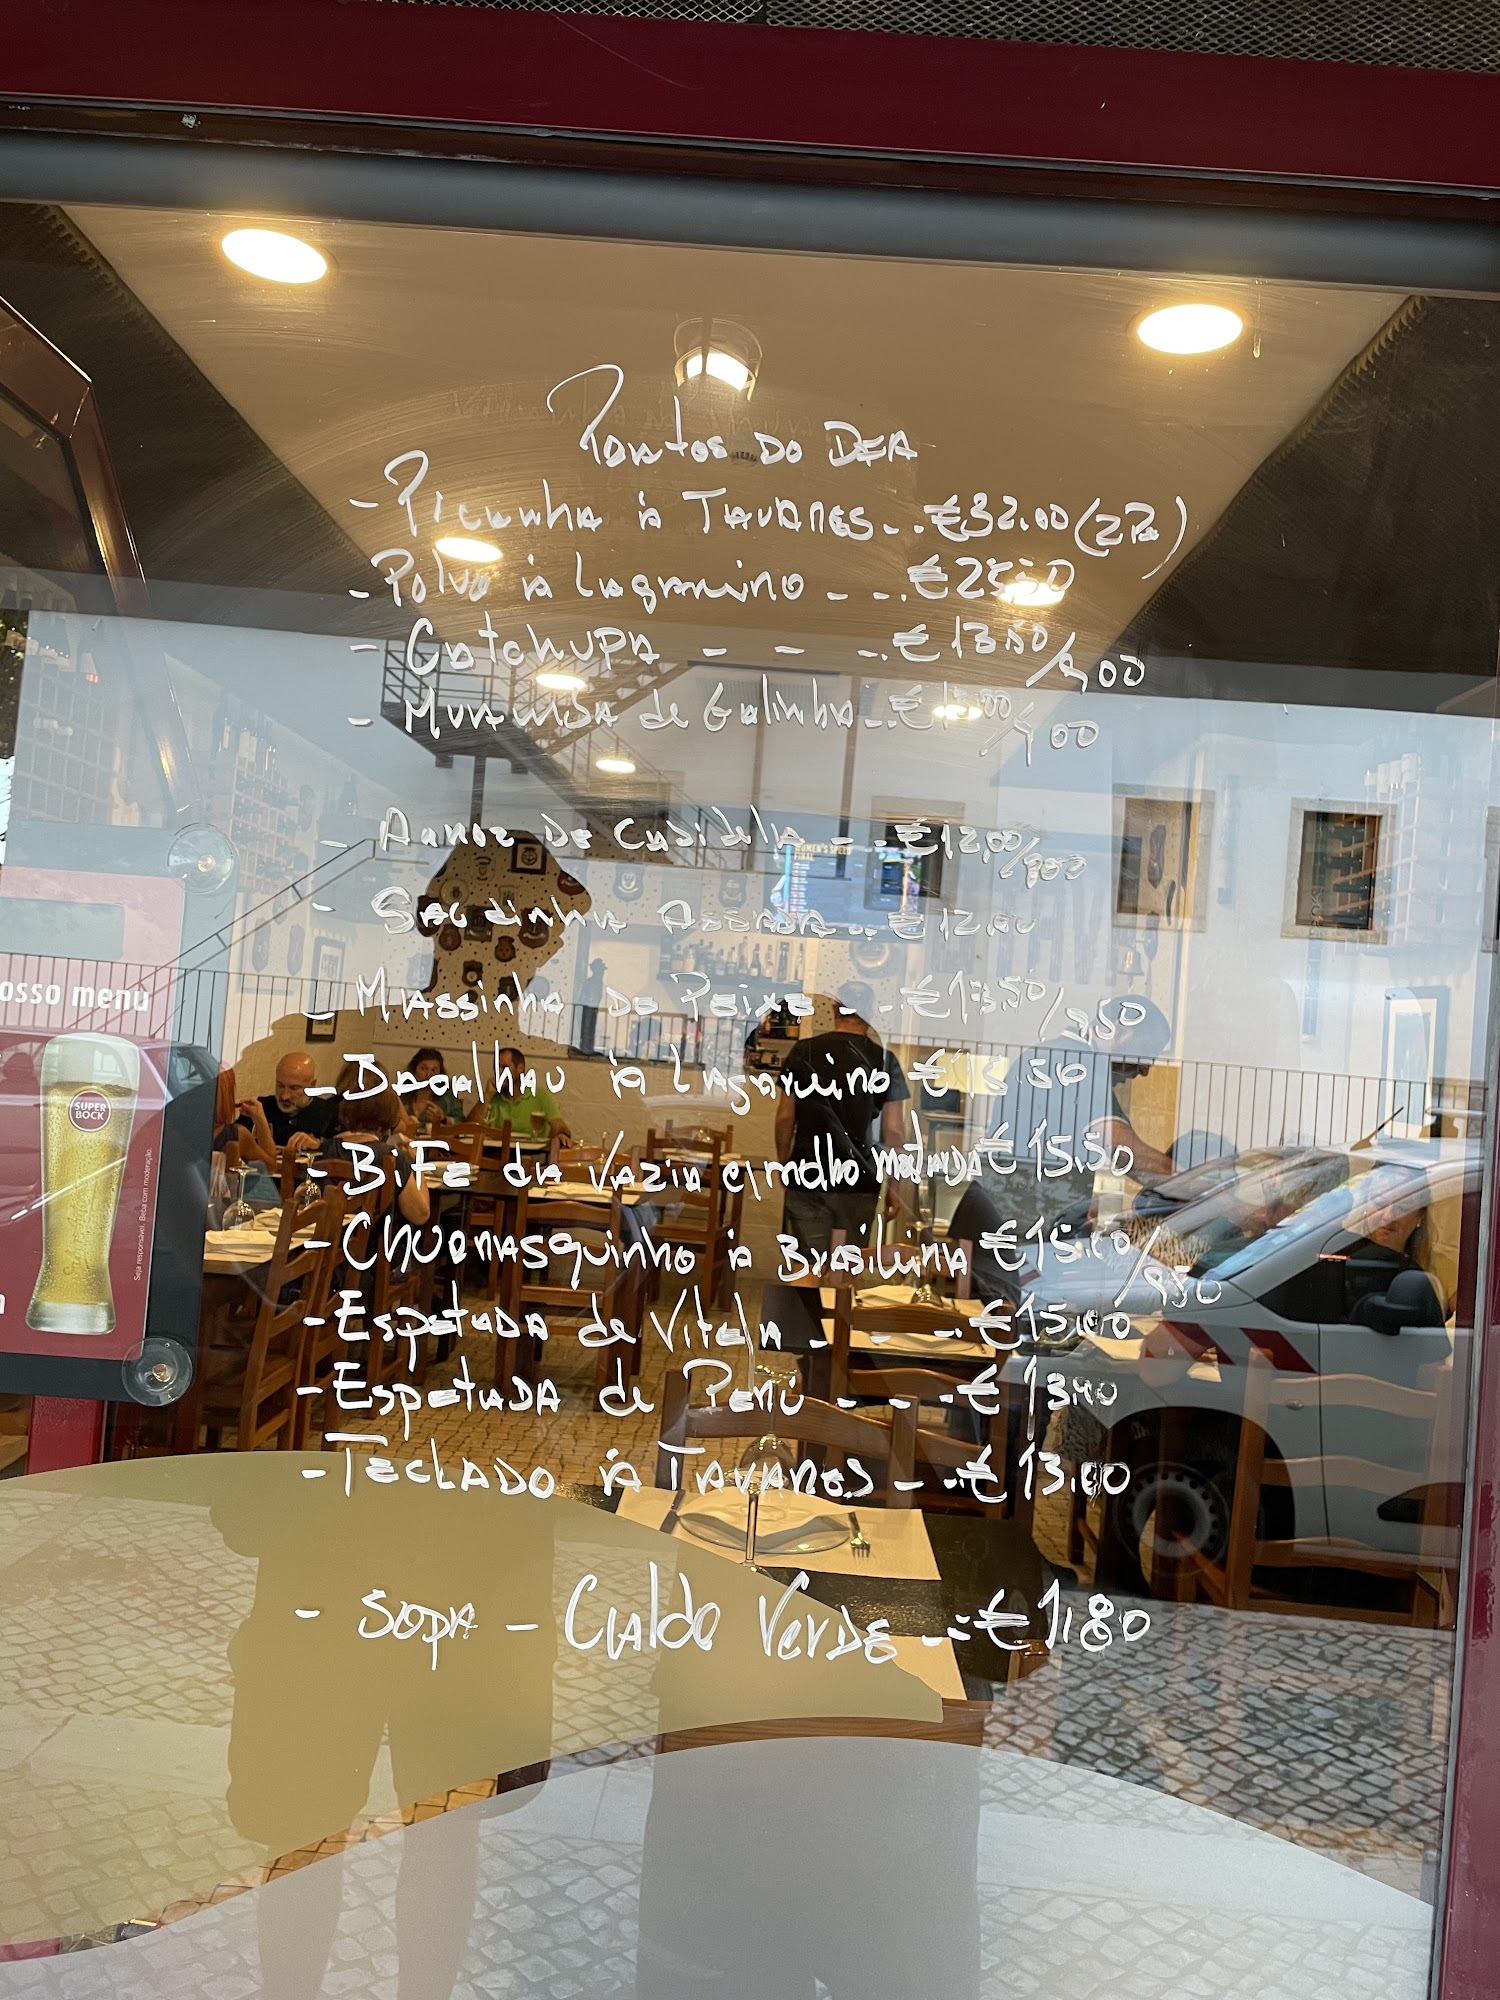 Pratos do DIA
- Picanha à TAVARES - .. €32.00 (2 Pa)
- Polvo à Lagareiro - - .. €25.50
- Catchupa - - - .. €13.50/9.00
- Muamba de Galinha - .. € /9.00
- Arroz de Cabidela - - . €12,00/800
- Sardinha Assada - .. €12.00
- Massinha de Peixe - - . €13.50/950
- Bacalhau à Lagareiro €15.50
- Bife da Vazia c/molho mostarda € 15.50
- Churrasquinho à Brasileira €15.00/950
- Espetada de Vitela - - - . €15.00
- Espetada de Perú - - - . € 13.00
- Teclado à TAVARES - - . € 13.00
- Sopa - Caldo Verde - .: € 1.80
osso menu
SUPER
BOCK
Seja responsável. Beba com moderação.